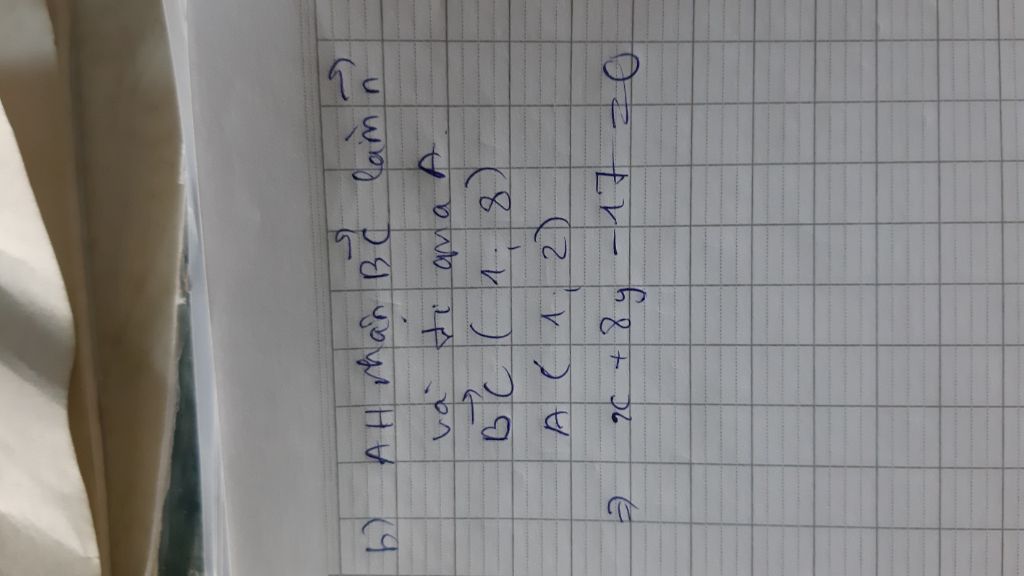 b) AH nhận BC→ làm n→
và đi qua A.
BC→ ( 1 ; 8 )
A ( 1 ; 2 )
=> x + 8y - 17 = 0